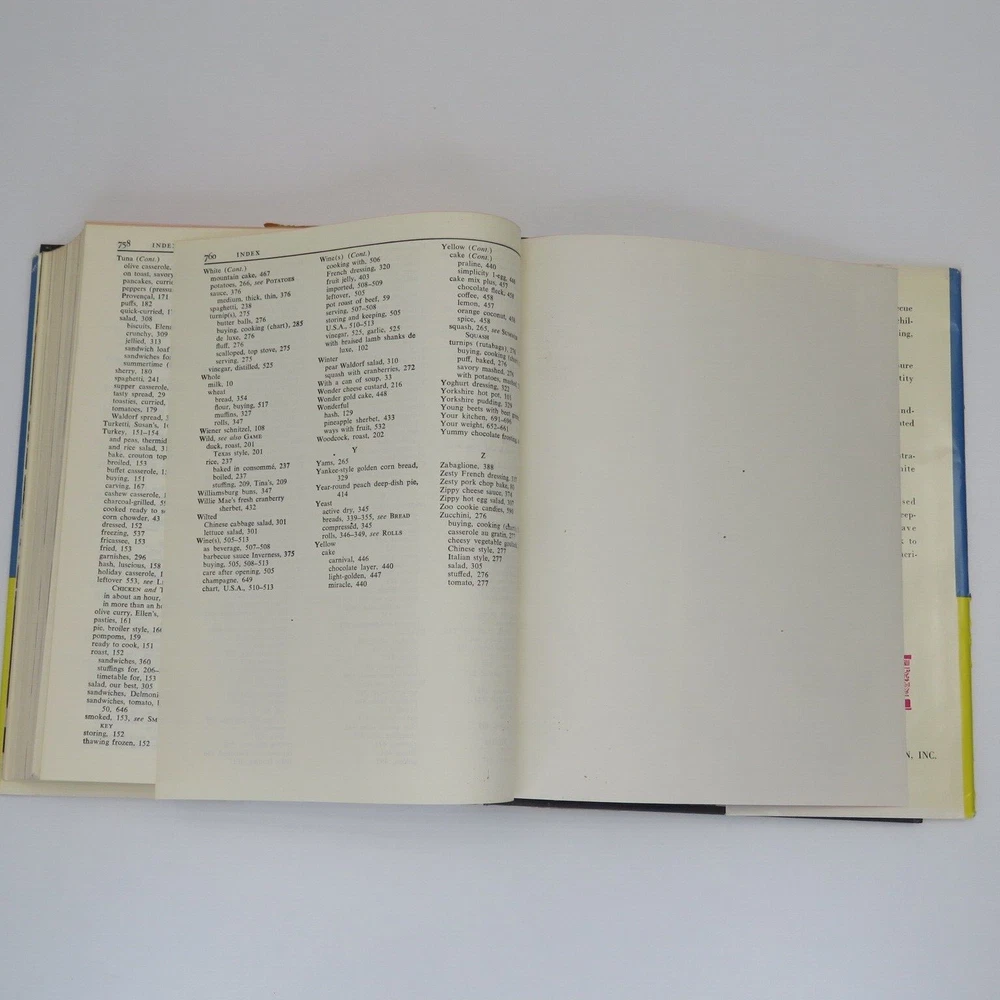 758 INDEX
Tuna (Cont.)
olive casserole,
on toast, savory
pancakes, curri
peppers (pressu
Provençal, 171
puffs, 182
quick-curried, 1
salad, 308
biscuits, Elen
crunchy, 309
jellied, 313
sandwich loaf
sandwiches fo
summertime (
sherry, 180
spaghetti, 241
supper casserole,
tasty spread, 29
toasties, curried,
tomatoes, 179
Waldorf spread, 3
Turketti, Susan's, 1
Turkey, 151–154
and peas, thermid
and rice salad, 3
bake, crouton top
broiled, 153
buffet casserole, 1
buying, 151
carving, 167
cashew casserole,
charcoal-grilled, 5
cooked ready to s
corn chowder, 43
dressed, 152
freezing, 537
fricassee, 153
fried, 153
garnishes, 296
hash, luscious, 158
holiday casserole, 1
leftover 553, see L
CHICKEN and T
in about an hour,
in more than an h
olive curry, Ellen's,
pasties, 161
pie, broiler style, 16
pompoms, 159
ready to cook, 151
roast, 152
sandwiches, 360
stuffings for, 206–
timetable for, 153
salad, our best, 305
sandwiches, Delmoni
sandwiches, tomato, 1
50, 646
smoked, 153, see SM
KEY
storing, 152
thawing frozen, 152
760 INDEX
White (Cont.)
mountain cake, 467
potatoes, 266, see POTATOES
sauce, 376
medium, thick, thin, 376
spaghetti, 238
turnip(s), 275
butter balls, 276
buying, cooking (chart), 285
de luxe, 276
fluff, 276
scalloped, top stove, 275
serving, 275
vinegar, distilled, 525
Whole
milk, 10
wheat
bread, 354
flour, buying, 517
muffins, 327
rolls, 347
Wiener schnitzel, 108
Wild, see also GAME
duck, roast, 201
Texas style, 201
rice, 237
baked in consommé, 237
boiled, 237
stuffing, 209, Tina's, 209
Williamsburg buns, 347
Willie Mae's fresh cranberry
sherbet, 432
Wilted
Chinese cabbage salad, 301
lettuce salad, 301
Wine(s), 505–513
as beverage, 507–508
barbecue sauce Inverness, 375
buying, 505, 508–513
care after opening, 505
champagne, 649
chart, U.S.A., 510–513
Wine(s) (Cont.)
cooking with, 506
French dressing, 320
fruit jelly, 403
imported, 508–509
leftover, 505
pot roast of beef, 59
serving, 507–508
storing and keeping, 505
U.S.A., 510–513
vinegar, 525, garlic, 525
with braised lamb shanks de
luxe, 102
Winter
pear Waldorf salad, 310
squash with cranberries, 272
With a can of soup, 33
Wonder cheese custard, 216
Wonder gold cake, 448
Wonderful
hash, 129
pineapple sherbet, 433
ways with fruit, 532
Woodcock, roast, 202
Y
Yams, 265
Yankee-style golden corn bread,
329
Year-round peach deep-dish pie,
414
Yeast
active dry, 345
breads, 339–355, see BREAD
compressed, 345
rolls, 346–349, see ROLLS
Yellow
cake
carnival, 446
chocolate layer, 440
light-golden, 447
miracle, 440
Yellow (Cont.)
cake (Cont.)
praline, 440
simplicity 1-egg,
cake mix plus, 457
chocolate fleck, 458
coffee, 458
lemon, 457
orange coconut, 458
spice, 458
squash, 265, see
SQUASH
turnips (rutabaga), 276
buying, cooking (chart
puff, baked, 276
savory mashed, 276
with potatoes,
Yoghurt dressing, 322
Yorkshire hot pot, 101
Yorkshire pudding, 328
Young beets with beet
Your kitchen, 691–696
Your weight, 652–661
Yummy chocolate frosting,
Z
Zabaglione, 388
Zesty French dressing,
Zesty pork chop bake,
Zippy cheese sauce, 376
Zippy hot egg salad, 307
Zoo cookie candles, 590
Zucchini, 276
buying, cooking (chart)
casserole au gratin, 277
cheesy vegetable
Chinese style, 277
Italian style, 277
salad, 305
stuffed, 276
tomato, 277
N, INC.